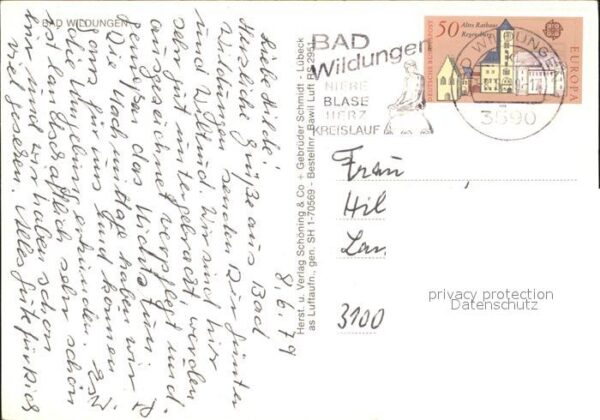 BAD WILDUNGEN
8.6.79
Liebe Hilde!
Herzliche Grüße aus Bad
Wildungen senden Dir Günter
und Wir sind hier
sehr gut untergebracht, werden
ausgezeichnet verpflegt und
genießen das Nichtstun.
Die Nachmittage haben wir
ganz für uns und können
die Umgebung erkunden. Es
ist landschaftlich sehr schön
hier und wir haben schon
viel gesehen. Alles Gute für Dich
Herst. u. Verlag Schöning & Co + Gebrüder Schmidt - Lübeck
as Luftaufn., gen. SH 1-70569 - Bestellnr. Bawil Luft RS 2951
BAD
Wildungen
NIERE
BLASE
HERZ
KREISLAUF
50 Altes Rathaus
Regensburg
DEUTSCHE BUNDESPOST
EUROPA
BAD WILDUNGEN
3590
Frau
Hil
Lan
3100
privacy protection
Datenschutz